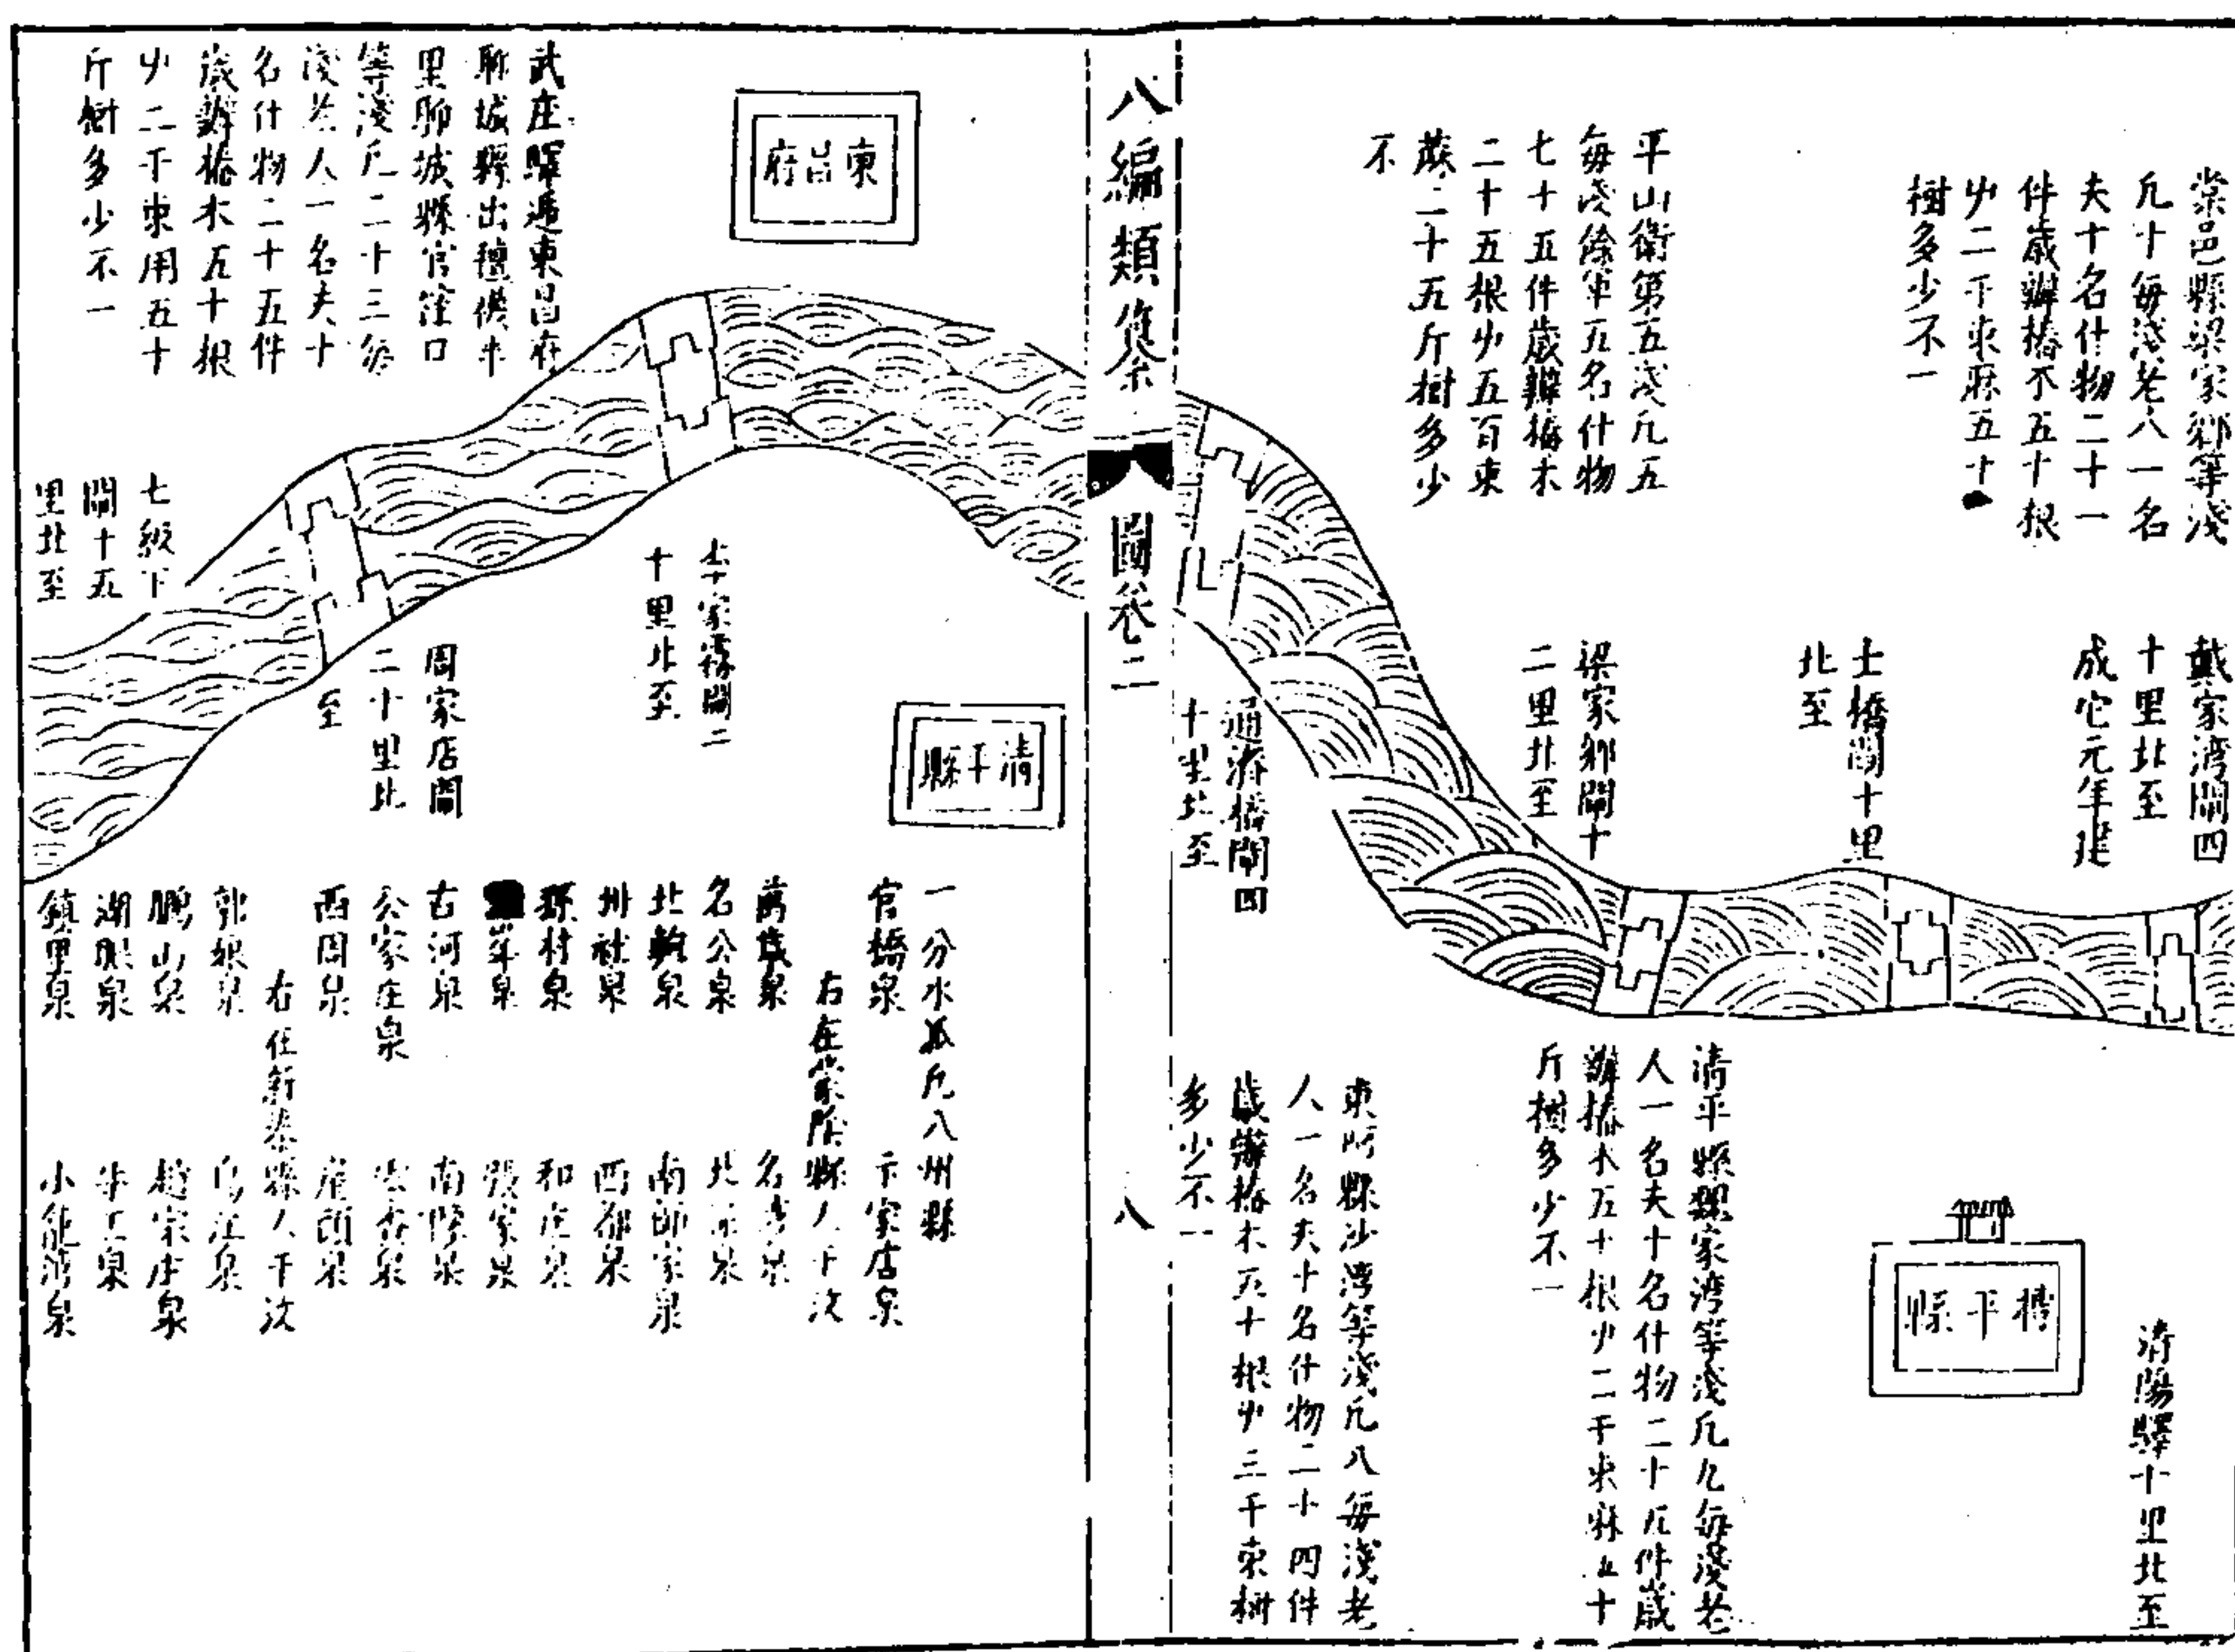 棠邑縣梁家鄉等淺
凢十每淺老人一名
夫十名什物二十一
件歲辦樁木五十根
少二千束麻五十
樹多少不一
平山衛第五淺凢五
每淺餘軍五名什物
七十五件歲辦樁木
二十五根少五百束
蔴二十五斤樹多少
不
戴家湾閘四
十里北至
成化元年建
土橋閘十里
北至
梁家鄉閘十
二里北至
通濟橋閘四
十里北至
清陽驛十里北至
博平縣
清平縣魏家湾等淺凢九每淺老
人一名夫十名什物二十五件歲
辦樁木五十根少二千束麻五十
斤樹多少不一
東阿縣沙湾等淺凢八每淺老
人一名夫十名什物二十四件
歲辦樁木五十根少三千束樹
多少不一
八編類纂
圖卷二
八
東昌府
武庄驛逓東昌府
聊城縣出
里聊城縣官窪口
等淺凢二十三每
淺老人一名夫十
名什物二十五件
歲辦樁木五十根
少二千束用五十
斤樹多少不一
李家霧閘二
十里北至
清平縣
周家店閘
二十里北
至
七級下
閘十五
里北至
一分水派凢八州縣
官橋泉
卞家店泉
右在蒙陰縣入于汶
萬歲泉
名公泉
北鮑泉
南師家泉
州社泉
西都泉
孫村泉
和庄泉
張家泉
古河泉
南陳泉
公家庄泉
西周泉
崖頭泉
右在新泰縣入于汶
郭娘泉
烏江泉
鵬山泉
趙家庄泉
湖眼泉
牛王泉
鎮里泉
小龍湾泉